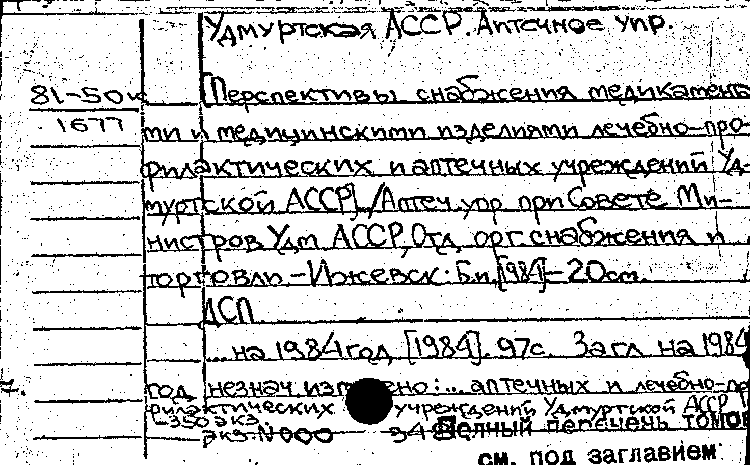 Удмуртская АССР. Аптечное упр.
81-50к
1677
[Перспективы снабжения медикамента-
ми и медицинскими изделиями лечебно-про-
филактических и аптечных учреждений Уд-
муртской АССР] / Аптеч. упр при Совете Ми-
нистров Удм АССР, Отд. орг. снабжения и
торговли. - Ижевск: Б.и., [1984] - 20см.
ДСП
... на 1984 год, [1984]. 97с. Загл на 1984
год незнач : ... аптечных и лечебно-
филактических учреждений Удмуртской АССР
350 экз.
экз. N000
Полный перечень томов
см. под заглавием